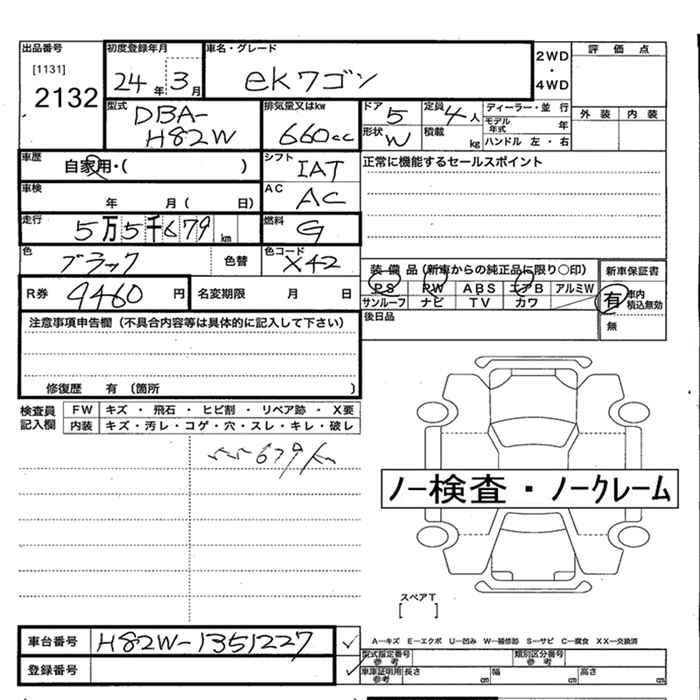 出品番号 初度登録年月 車名・グレード 評価点
[1131]
2132
24年3月
ekワゴン
2WD
・
4WD
外装 内装
型式 DBA-
H82W
排気量又はkw 660cc
ドア 5 定員 4人
形状 W 積載 kg
ディーラー・並行
モデル年式 年
ハンドル 左・右
車歴 自家用・( )
シフト IAT
正常に機能するセールスポイント
車検 年 月( 日)
AC AC
走行 5万5千679km
燃料 G
色 ブラック 色替
色コード X42
装備品(新車からの純正品に限り○印) 新車保証書
PS PW ABS エアB アルミW
サンルーフ ナビ TV カワ
有 車内積込無効
無
R券 9460円 名変期限 月 日
後日品
注意事項申告欄(不具合内容等は具体的に記入して下さい)
修復歴 有(箇所 )
検査員記入欄 FW キズ・飛石・ヒビ割・リペア跡・X要
内装 キズ・汚レ・コゲ・穴・スレ・キレ・破レ
55679km
ノー検査・ノークレーム
スペアT
[ ]
車台番号 H82W-1351227
登録番号
A―キズ E―エクボ U―凹み W―補修跡 S―サビ C―腐食 XX―交換済
型式指定番号 参考 類別区分番号 参考
車庫証明用 参考 長さ cm 幅 cm 高さ cm